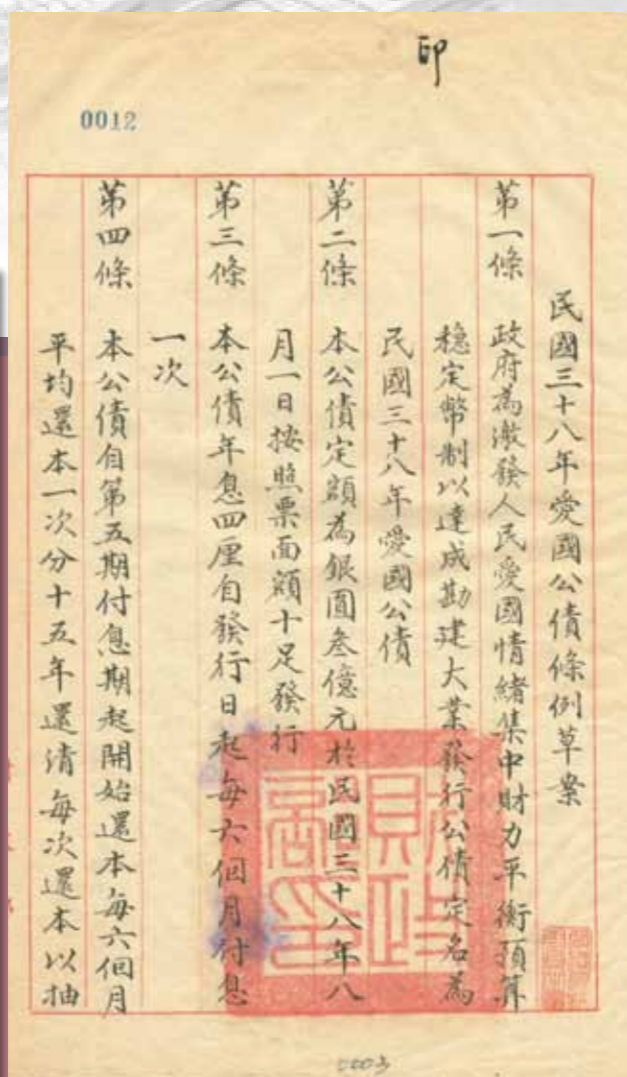 印
0012
民國三十八年愛國公債條例草案
第一條 政府為激發人民愛國情緒集中財力平衡預算
穩定幣制以達成勘建大業發行公債定名為
民國三十八年愛國公債
第二條 本公債定額為銀圓叁億元於民國三十八年八
月一日按照票面額十足發行
第三條 本公債年息四厘自發行日起每六個月付息
一次
第四條 本公債自第五期付息期起開始還本每六個月
平均還本一次分十五年還清每次還本以抽
財政部印
0003